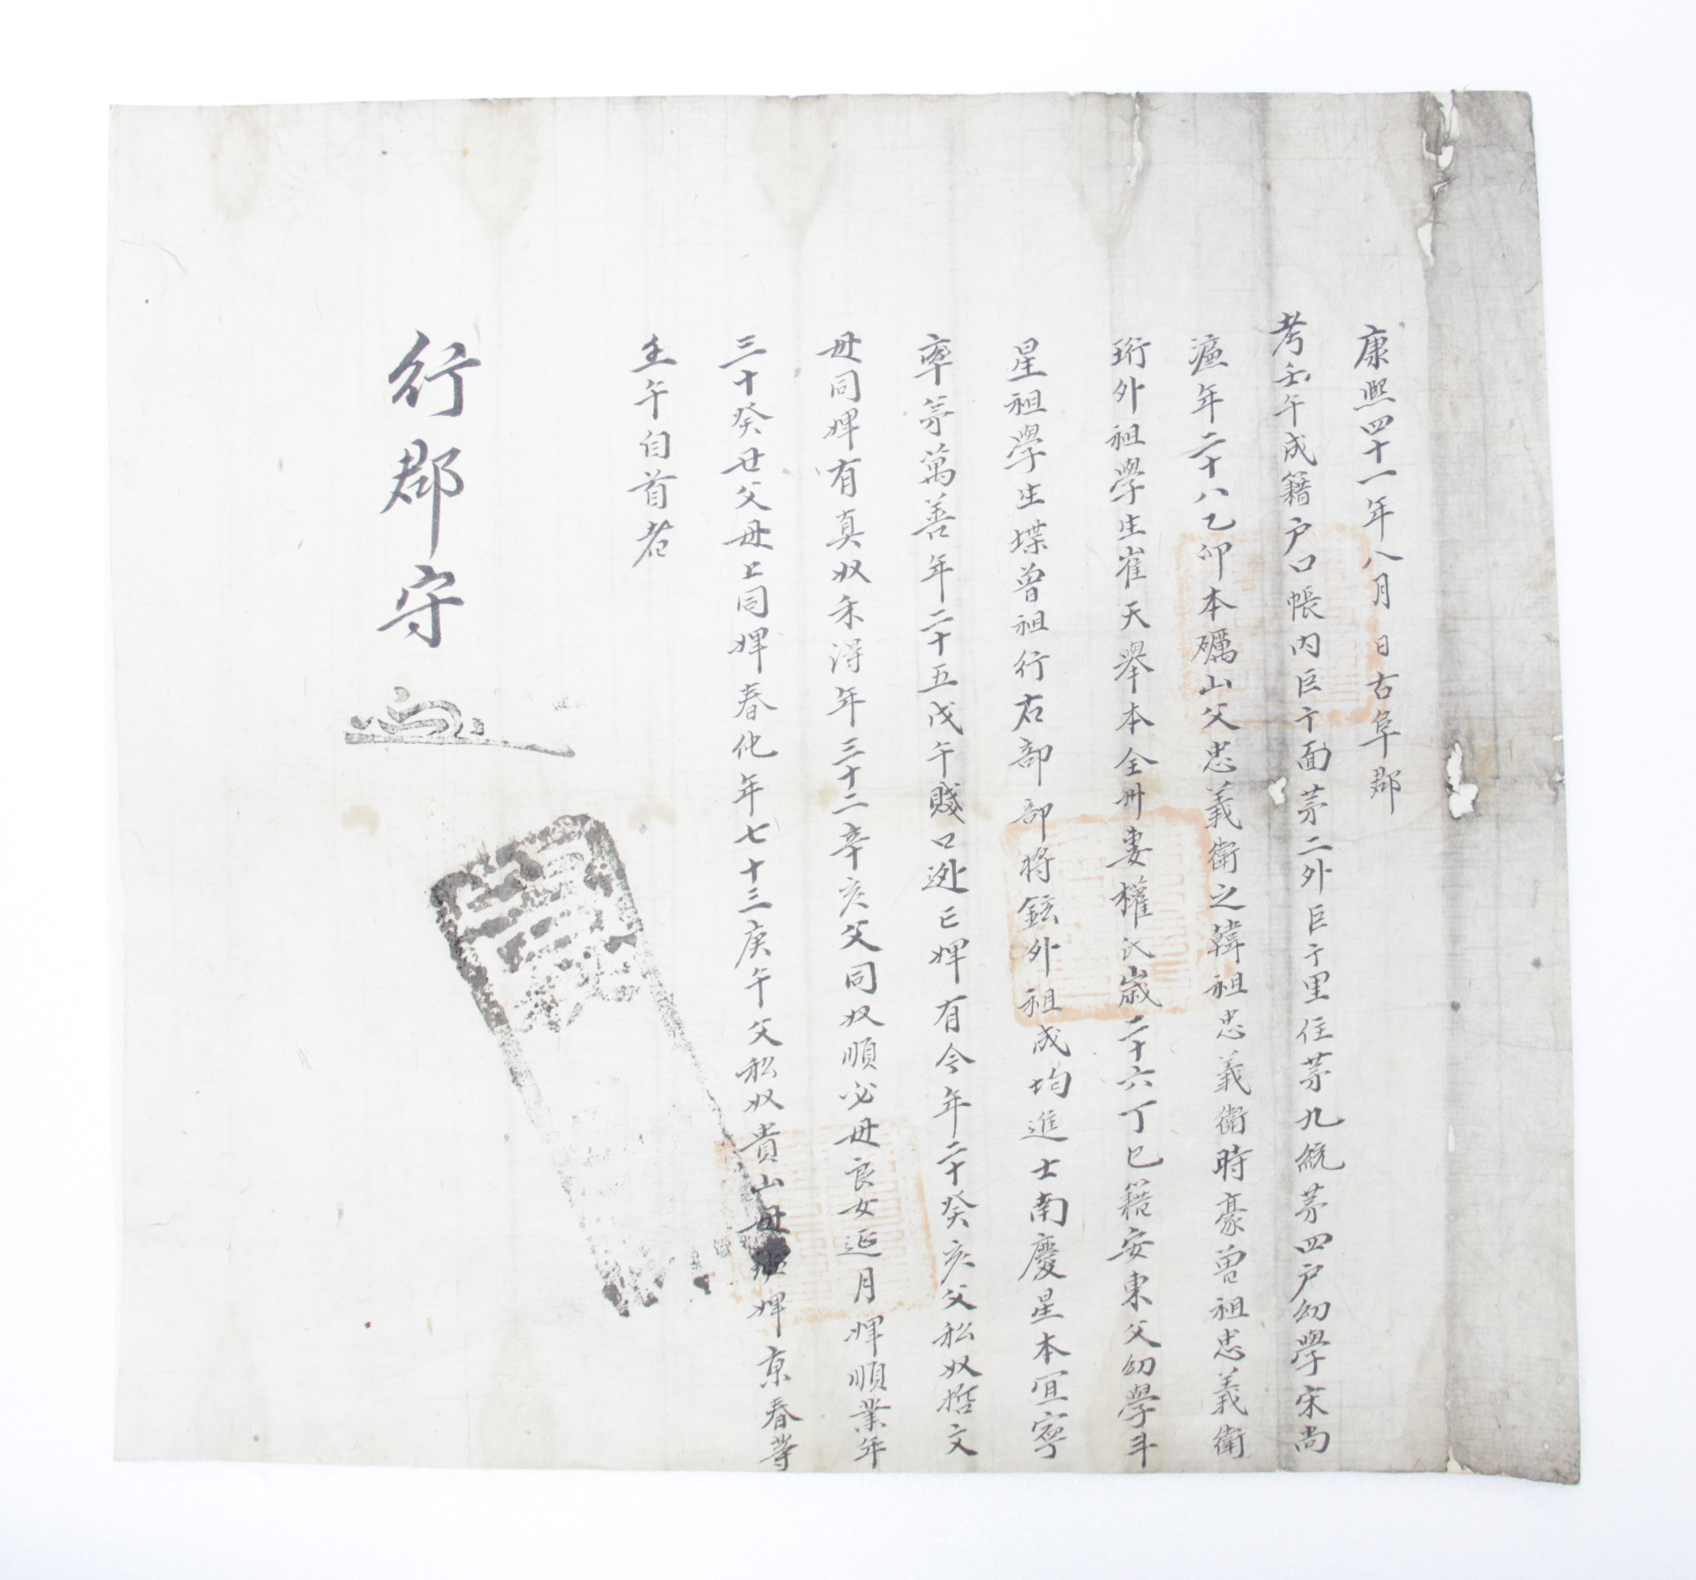 康熙四十一年八月 日古阜郡
考壬午成籍户口帳內巨于面苐二外巨于里住苐九統苐四户幼學宋尚
濂年二十八乙卯本礪山父忠義衛之韓祖忠義衛時豪曾祖忠義衛
珩外祖學生崔天舉本全州妻權氏歲二十六丁巳籍安東父幼學斗
星祖學生堞曾祖行右部部將鉉外祖成均進士南慶星本宜寧
率弟萬善年二十五戊午賤口秩己婢有今年二十癸亥父私奴哲文
母同婢有真奴禾得年三十二辛亥父同奴順必母良女延月婢順業年
三十癸丑父母上同婢春化年七十三庚午父私奴貴山母婢京春等
壬午自首者
行郡守